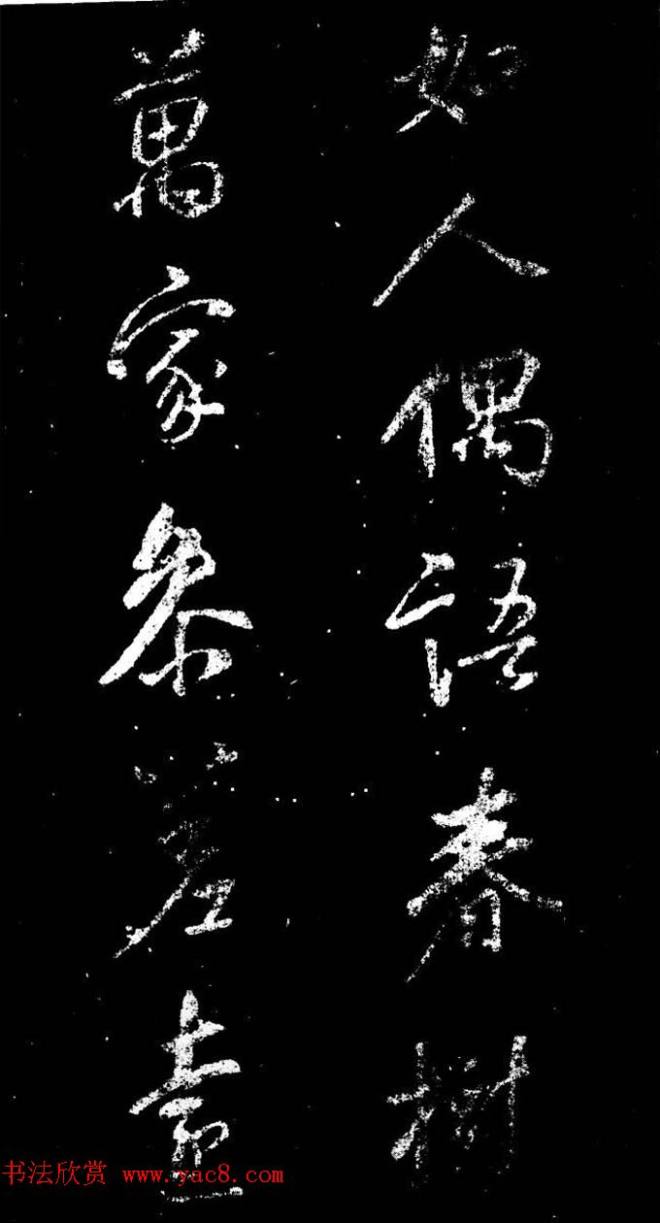 如人偶語春樹
萬家參差臺
书法欣赏 www.yac8.com